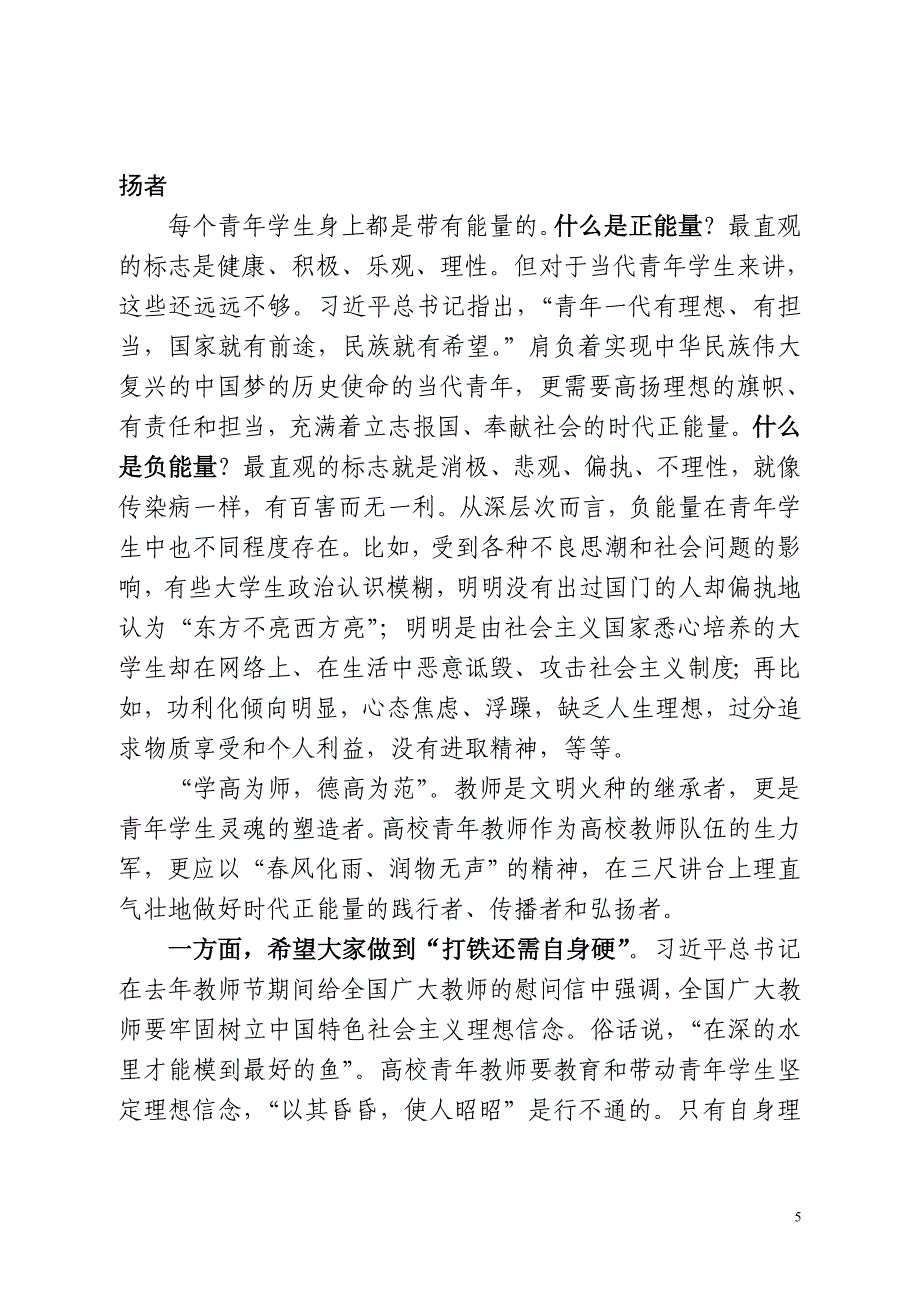 扬者
每个青年学生身上都是带有能量的。什么是正能量？最直观
的标志是健康、积极、乐观、理性。但对于当代青年学生来讲，
这些还远远不够。习近平总书记指出，“青年一代有理想、有担
当，国家就有前途，民族就有希望。”肩负着实现中华民族伟大
复兴的中国梦的历史使命的当代青年，更需要高扬理想的旗帜、
有责任和担当，充满着立志报国、奉献社会的时代正能量。什么
是负能量？最直观的标志就是消极、悲观、偏执、不理性，就像
传染病一样，有百害而无一利。从深层次而言，负能量在青年学
生中也不同程度存在。比如，受到各种不良思潮和社会问题的影
响，有些大学生政治认识模糊，明明没有出过国门的人却偏执地
认为“东方不亮西方亮”；明明是由社会主义国家悉心培养的大
学生却在网络上、在生活中恶意诋毁、攻击社会主义制度；再比
如，功利化倾向明显，心态焦虑、浮躁，缺乏人生理想，过分追
求物质享受和个人利益，没有进取精神，等等。
“学高为师，德高为范”。教师是文明火种的继承者，更是
青年学生灵魂的塑造者。高校青年教师作为高校教师队伍的生力
军，更应以“春风化雨、润物无声”的精神，在三尺讲台上理直
气壮地做好时代正能量的践行者、传播者和弘扬者。
一方面，希望大家做到“打铁还需自身硬”。习近平总书记
在去年教师节期间给全国广大教师的慰问信中强调，全国广大教
师要牢固树立中国特色社会主义理想信念。俗话说，“在深的水
里才能模到最好的鱼”。高校青年教师要教育和带动青年学生坚
定理想信念，“以其昏昏，使人昭昭”是行不通的。只有自身理
5